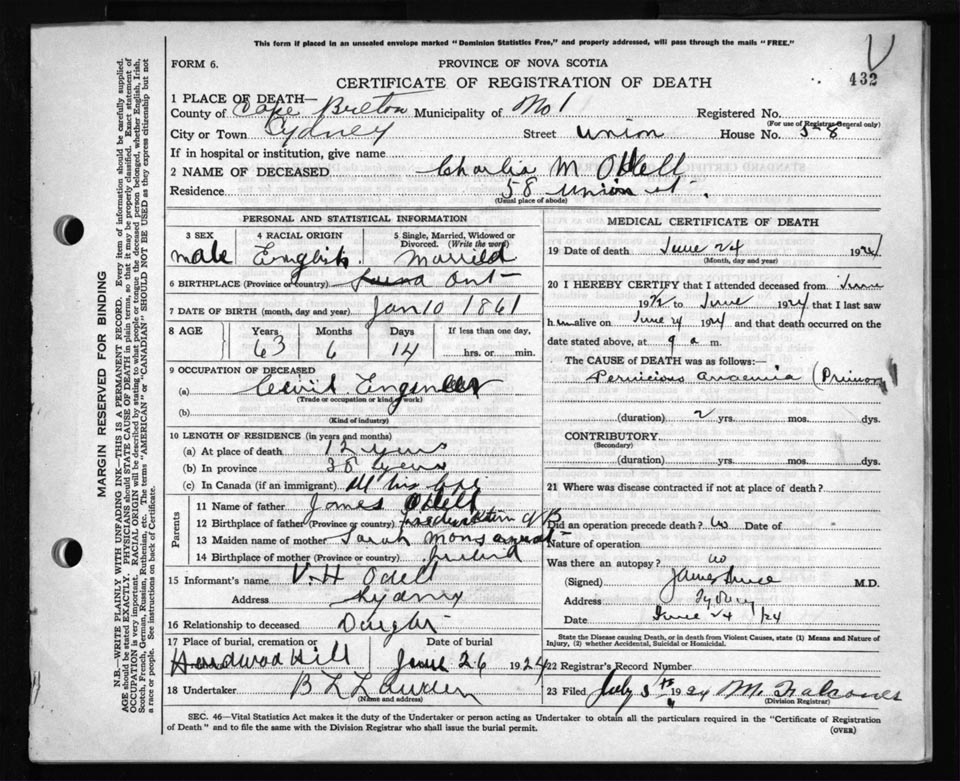 This form if placed in an unsealed envelope marked "Dominion Statistics Free," and properly addressed, will pass through the mails "FREE."
FORM 6.
PROVINCE OF NOVA SCOTIA
CERTIFICATE OF REGISTRATION OF DEATH
432
1 PLACE OF DEATH—
County of Cape Breton Municipality of No 1 Registered No.
(For use of Registrar-General only)
City or Town Sydney Street Union House No. 58
If in hospital or institution, give name
2 NAME OF DECEASED Charlie M Odell
Residence 58 Union st.
(Usual place of abode)
PERSONAL AND STATISTICAL INFORMATION
3 SEX 4 RACIAL ORIGIN 5 Single, Married, Widowed or Divorced. (Write the word)
male English. Married
6 BIRTHPLACE (Province or country) Ont
7 DATE OF BIRTH (month, day and year) Jan 10 1861
8 AGE Years Months Days If less than one day,
63 6 14 hrs. or min.
9 OCCUPATION OF DECEASED
(a) Civil Engineer
(Trade or occupation or kind of work)
(b)
(Kind of industry)
10 LENGTH OF RESIDENCE (in years and months)
(a) At place of death 12 years
(b) In province 38 years
(c) In Canada (if an immigrant) All his life
Parents
11 Name of father James Odell
12 Birthplace of father (Province or country) N B
13 Maiden name of mother Sarah
14 Birthplace of mother (Province or country) Ireland
15 Informant's name V. H Odell
Address Sydney
16 Relationship to deceased
17 Place of burial, cremation or Date of burial
Hardwood Hill June 26 1924
18 Undertaker B L
(Name and address)
MEDICAL CERTIFICATE OF DEATH
19 Date of death June 24 1924
(Month, day and year)
20 I HEREBY CERTIFY that I attended deceased from June
19 to June 1924 that I last saw
h im alive on June 24 1924 and that death occurred on the
date stated above, at 9 a m.
The CAUSE of DEATH was as follows:
Pernicious anaemia (Primary
(duration) 2 yrs. mos. dys.
CONTRIBUTORY
(Secondary)
(duration) yrs. mos. dys.
21 Where was disease contracted if not at place of death?
Did an operation precede death? no Date of
Nature of operation
Was there an autopsy? no
(Signed) James Bruce M.D.
Address Sydney
Date June 24 /24
State the Disease causing Death, or in death from Violent Causes, state (1) Means and Nature of
Injury, (2) whether Accidental, Suicidal or Homicidal.
22 Registrar's Record Number
23 Filed July 3rd 1924 M.
(Division Registrar)
SEC. 46—Vital Statistics Act makes it the duty of the Undertaker or person acting as Undertaker to obtain all the particulars required in the "Certificate of Registration
of Death" and to file the same with the Division Registrar who shall issue the burial permit.
(OVER)
MARGIN RESERVED FOR BINDING
N.B.—WRITE PLAINLY WITH UNFADING INK—THIS IS A PERMANENT RECORD. Every item of information should be carefully supplied.
AGE should be stated EXACTLY. PHYSICIANS should STATE CAUSE OF DEATH in plain terms, so that it may be properly classified. Exact statement of
OCCUPATION is very important. RACIAL ORIGIN will be described by stating to what people or tongue the deceased person belonged, whether English, Irish,
Scotch, French, German, Russian, Ruthenian, etc. The terms "AMERICAN" or "CANADIAN" SHOULD NOT BE USED as they express citizenship but not
a race or people. See instructions on back of Certificate.